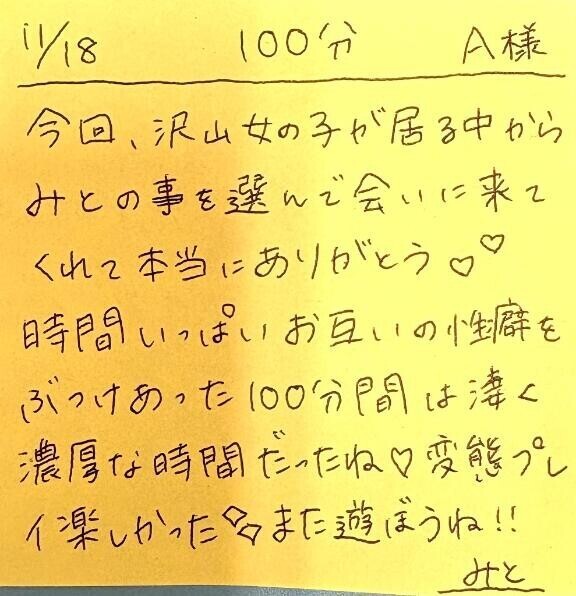 11/18 100分 A様
今回、沢山女の子が居る中から
みとの事を選んで会いに来て
くれて本当にありがとう♡♡
時間いっぱいお互いの性癖を
ぶつけあった100分間は凄く
濃厚な時間だったね♡変態プレ
イ楽しかった◇◇また遊ぼうね!!
みと